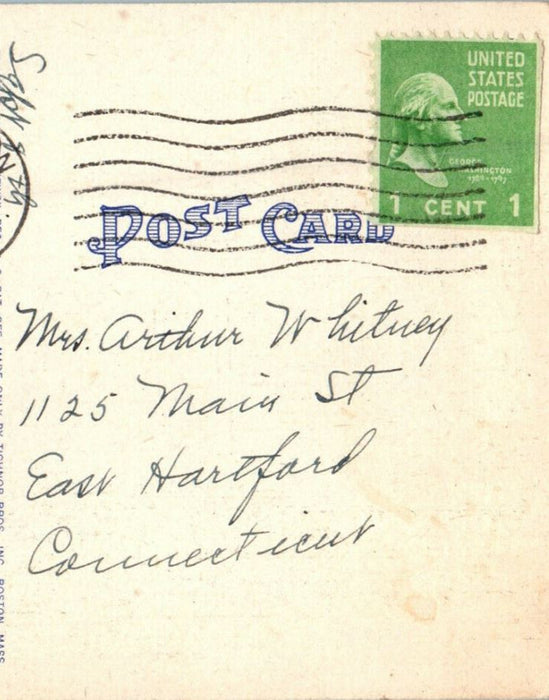 UNITED
STATES
POSTAGE
GEORGE
WASHINGTON
1789-1797
1 CENT 1
POST CARD
Mrs. Arthur Whitney
1125 Main St
East Hartford
Connecticut
MADE ONLY BY TICHNOR BROS. INC. BOSTON, MASS